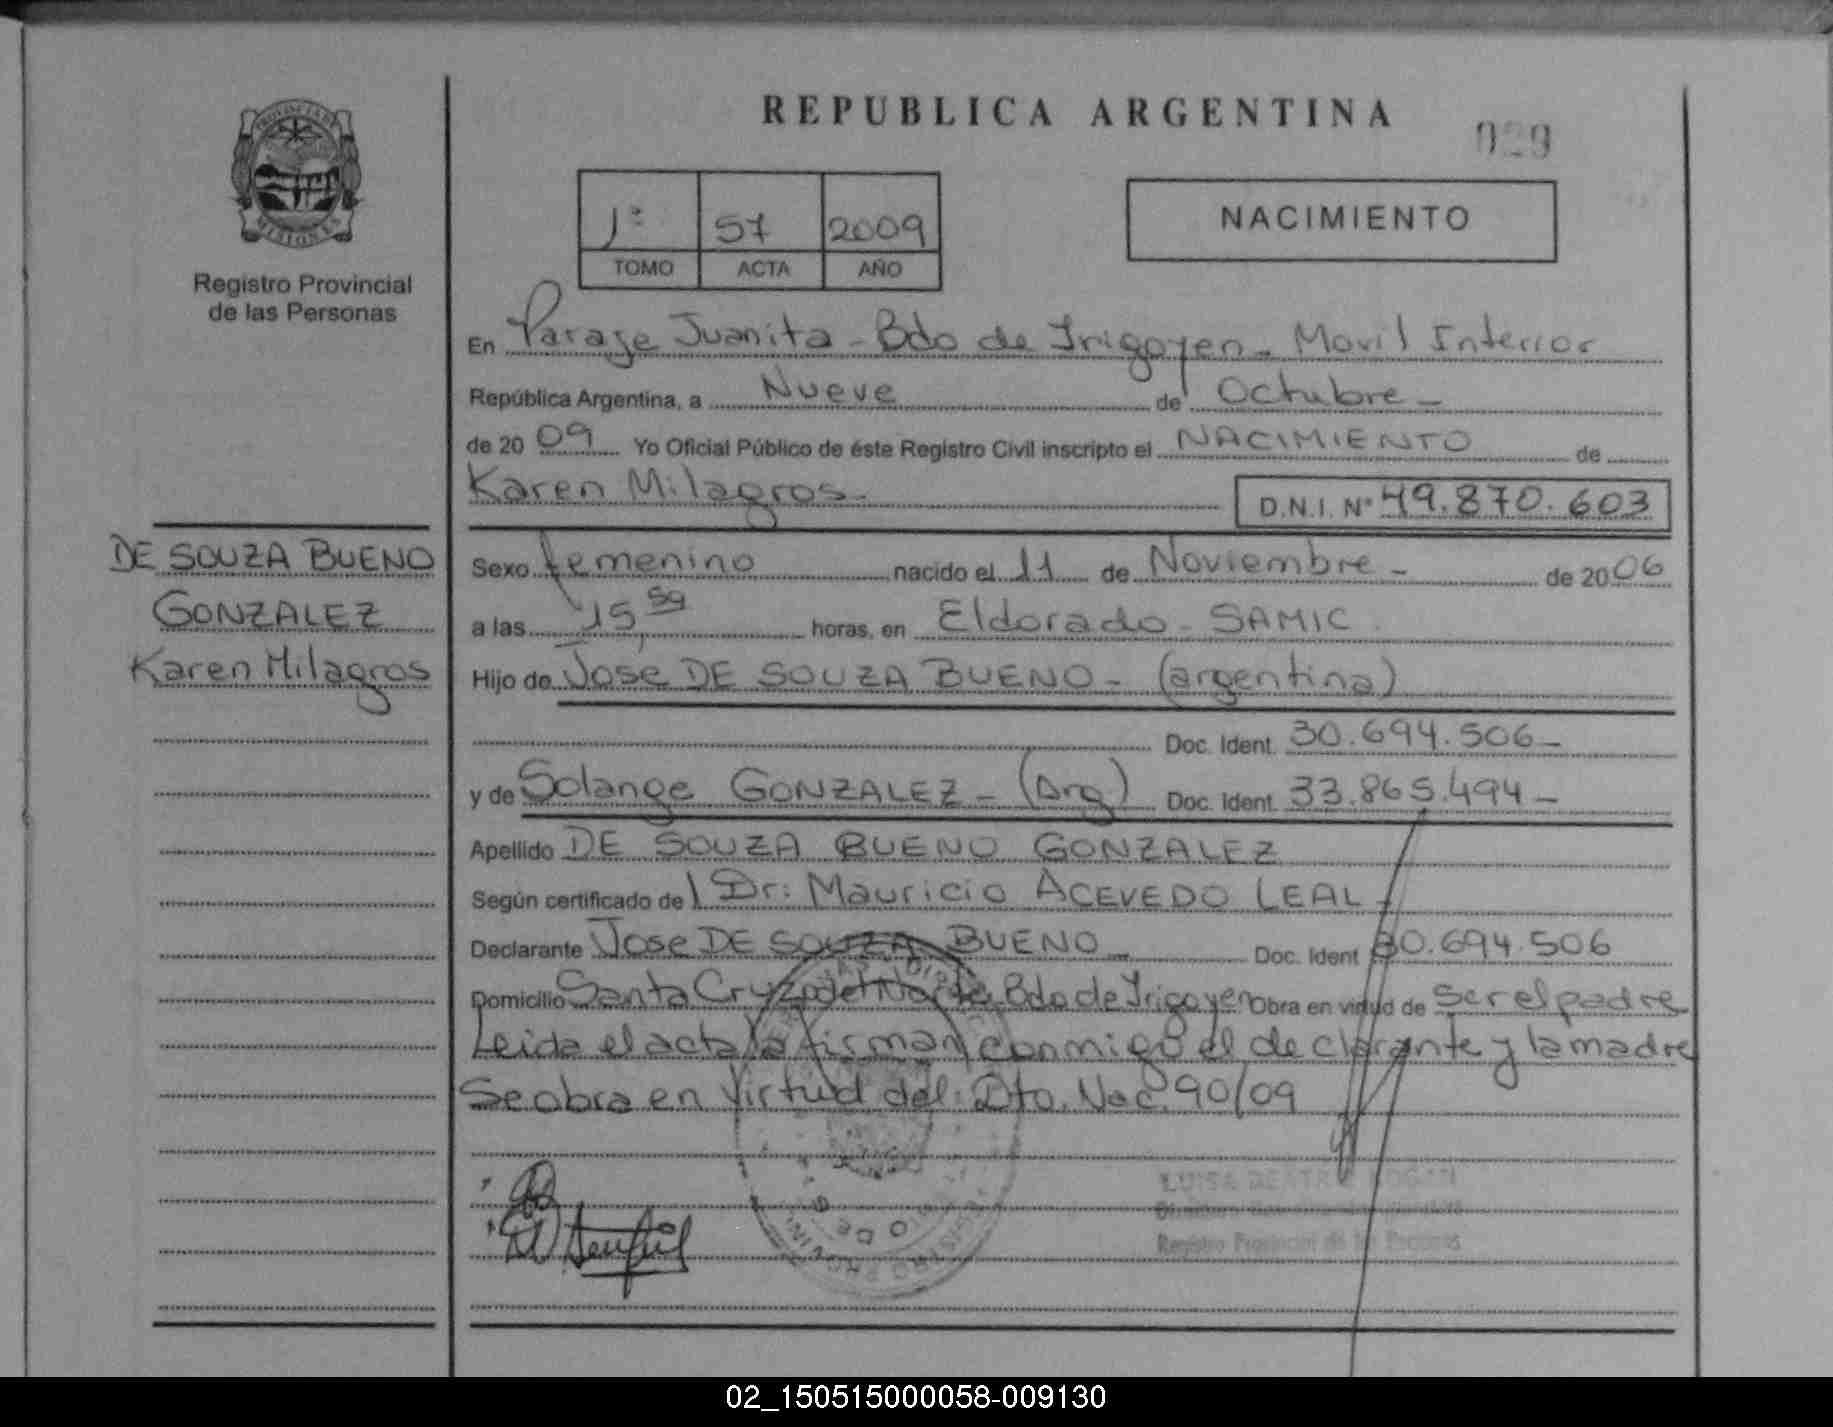 REPUBLICA ARGENTINA
029
PROVINCIA DE
MISIONES
Registro Provincial
de las Personas
1º 57 2009
TOMO ACTA AÑO
NACIMIENTO
En Paraje Juanita - Bdo de Irigoyen - Movil Interior
República Argentina, a Nueve de Octubre -
de 20 09 Yo Oficial Público de éste Registro Civil inscripto el NACIMIENTO de
Karen Milagros -
D.N.I. Nº 49.870.603
DE SOUZA BUENO
GONZALEZ
Karen Milagros
Sexo femenino nacido el 11 de Noviembre - de 20 06
a las 15,59 horas, en Eldorado - SAMIC
Hijo de Jose DE SOUZA BUENO - (argentina)
Doc. Ident. 30.694.506 -
y de Solange GONZALEZ - (Arg) Doc. Ident. 33.865.494 -
Apellido DE SOUZA BUENO GONZALEZ
Según certificado de Dr: Mauricio ACEVEDO LEAL -
Declarante Jose DE SOUZA BUENO Doc. Ident 30.694.506
Domicilio Santa Cruz del Monte Bdo de Irigoyen Obra en virtud de ser el padre
Leida el acta la firman conmigo el declarante y la madre
Se obra en Virtud del: Dto. Nac. 90/09
LUISA
Registro Provincial de las Personas
02_150515000058-009130